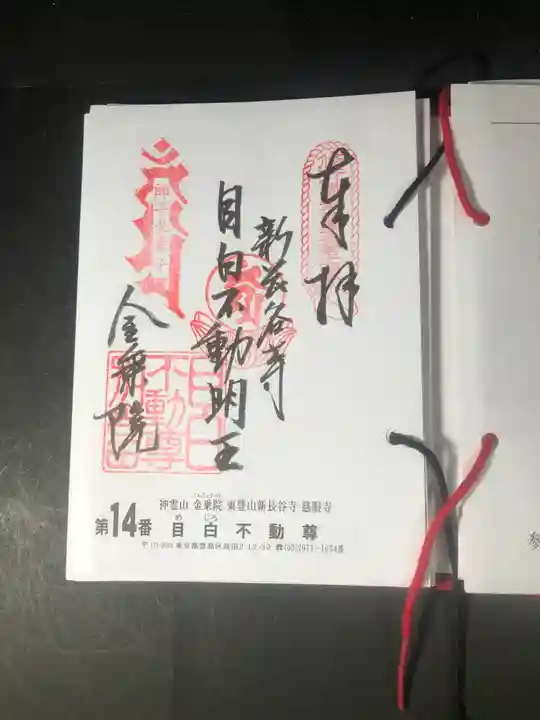 奉拝
新長谷寺
目白不動明王
金乗院
神霊山 金乗院 東豊山新長谷寺 慈眼寺
こんじょういん
めじろ
第14番 目白不動尊
東京都豊島区高田2-12-39 ☎(03)3971-1654番
目白不動尊
参